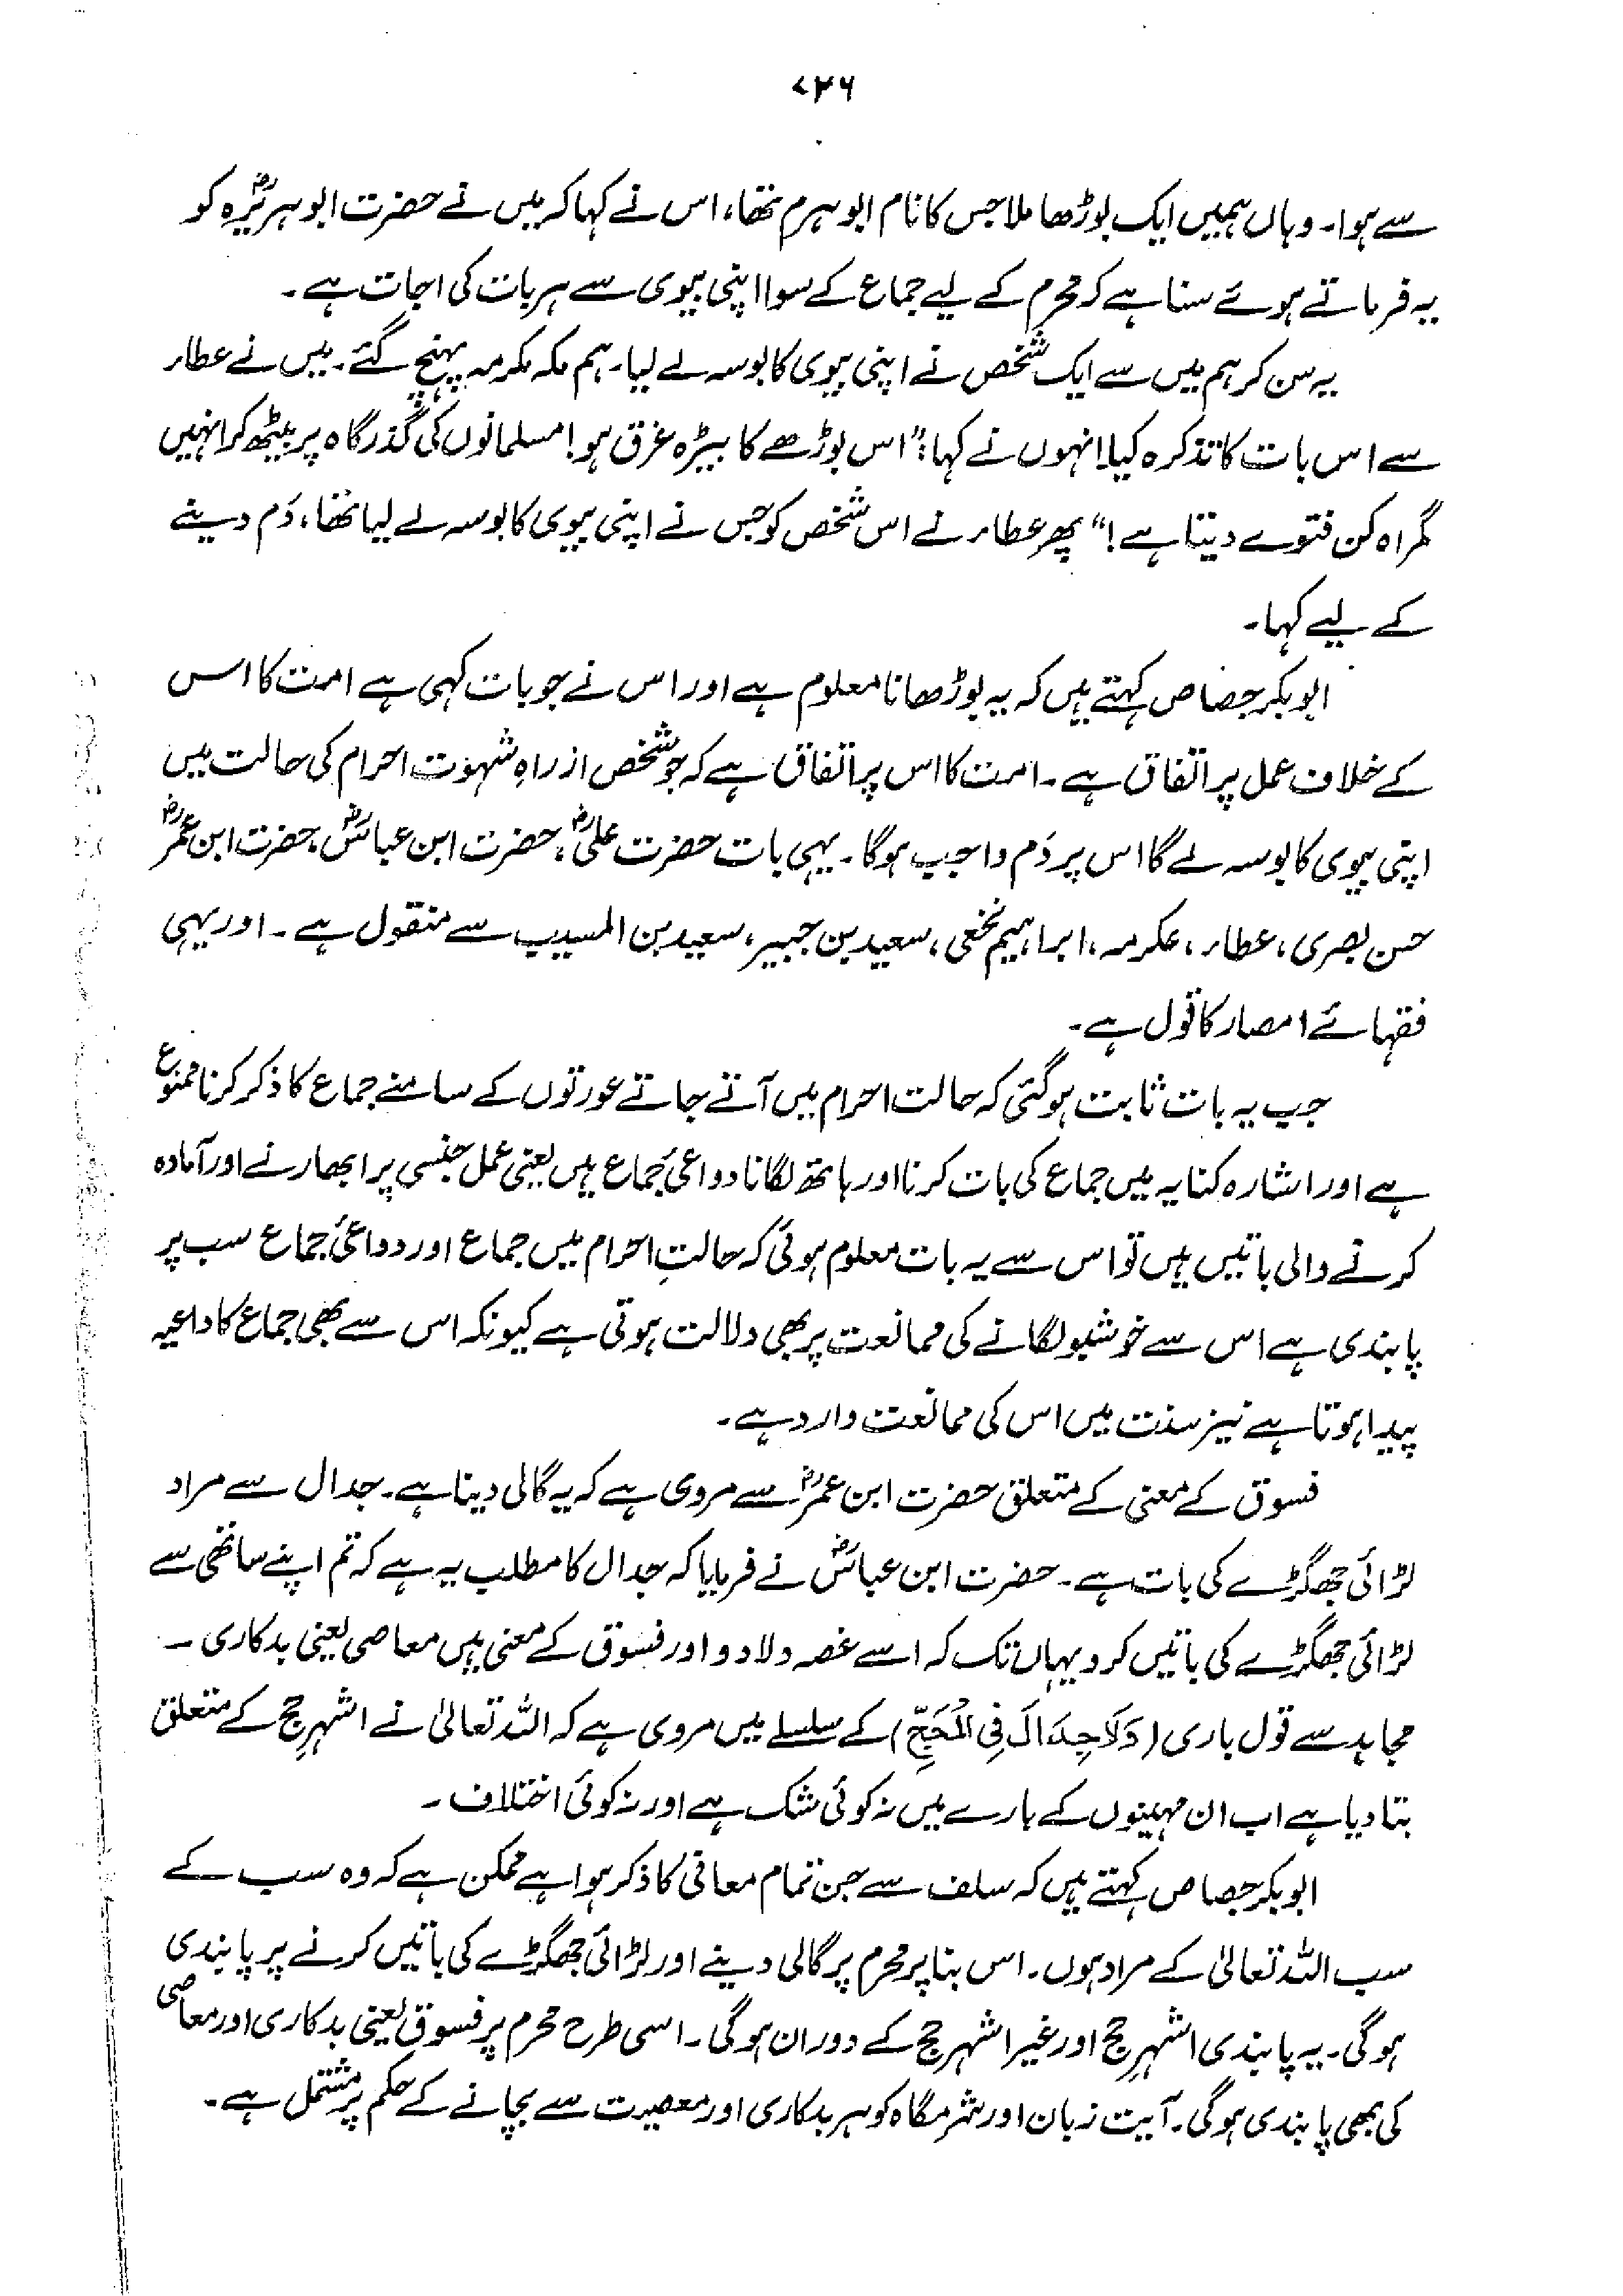 ۷۲۶
سے ہوا۔ وہاں ہمیں ایک بوڑھا ملا جس کا نام ابو ہرم تھا، اس نے کہا کہ میں نے حضرت ابوہریرہؓ کو
یہ فرماتے ہوئے سنا ہے کہ محرم کے لیے جماع کے سوا اپنی بیوی سے ہر بات کی اجات ہے۔
یہ سن کر ہم میں سے ایک شخص نے اپنی بیوی کا بوسہ لے لیا۔ ہم مکہ مکرمہ پہنچ گئے۔ میں نے عطاء
سے اس بات کا تذکرہ کیا انہوں نے کہا: "اس بوڑھے کا بیڑہ غرق ہو! مسلمانوں کی گذرگاہ پر بیٹھ کر انہیں
گمراہ کن فتوے دیتا ہے!" پھر عطاء نے اس شخص کو جس نے اپنی بیوی کا بوسہ لے لیا تھا، دَم دینے
کے لیے کہا۔
ابوبکر جصاص کہتے ہیں کہ یہ بوڑھا نامعلوم ہے اور اس نے جو بات کہی ہے امت کا اس
کے خلاف عمل پر اتفاق ہے۔ امت کا اس پر اتفاق ہے کہ جو شخص از راہِ شہوت احرام کی حالت میں
اپنی بیوی کا بوسہ لے گا اس پر دَم واجب ہوگا۔ یہی بات حضرت علیؓ، حضرت ابن عباسؓ، حضرت ابن عمرؓ
حسن بصری، عطاء، عکرمہ، ابراہیم نخعی، سعید بن جبیر، سعید بن المسیب سے منقول ہے۔ اور یہی
فقہائے امصار کا قول ہے۔
جب یہ بات ثابت ہوگئی کہ حالت احرام میں آتے جاتے عورتوں کے سامنے جماع کا ذکر کرنا ممنوع
ہے اور اشارہ کنایہ میں جماع کی بات کرنا اور ہاتھ لگانا دواعیٔ جماع ہیں یعنی عمل جنسی پر ابھارنے اور آمادہ
کرنے والی باتیں ہیں تو اس سے یہ بات معلوم ہوئی کہ حالتِ احرام میں جماع اور دواعیٔ جماع سب پر
پابندی ہے اس سے خوشبو لگانے کی ممانعت پر بھی دلالت ہوتی ہے کیونکہ اس سے بھی جماع کا داعیہ
پیدا ہوتا ہے نیز سنت میں اس کی ممانعت وارد ہے۔
فسوق کے معنی کے متعلق حضرت ابن عمرؓ سے مروی ہے کہ یہ گالی دینا ہے۔ جدال سے مراد
لڑائی جھگڑے کی بات ہے۔ حضرت ابن عباسؓ نے فرمایا کہ جدال کا مطلب یہ ہے کہ تم اپنے ساتھی سے
لڑائی جھگڑے کی باتیں کرو یہاں تک کہ اسے غصہ دلا دو اور فسوق کے معنی ہیں معاصی یعنی بدکاری۔
مجاہد سے قول باری (وَلَا جِدَالَ فِی الْحَجِّ) کے سلسلے میں مروی ہے کہ اللہ تعالیٰ نے اشہرِ حج کے متعلق
بتا دیا ہے اب ان مہینوں کے بارے میں نہ کوئی شک ہے اور نہ کوئی اختلاف۔
ابوبکر جصاص کہتے ہیں کہ سلف سے جن تمام معانی کا ذکر ہوا ہے ممکن ہے کہ وہ سب کے
سب اللہ تعالیٰ کے مراد ہوں۔ اس بنا پر محرم پر گالی دینے اور لڑائی جھگڑے کی باتیں کرنے پر پابندی
ہوگی۔ یہ پابندی اشہرِ حج اور غیر اشہر حج کے دوران ہوگی۔ اسی طرح محرم پر فسوق یعنی بدکاری اور معاصی
کی بھی پابندی ہوگی۔ آیت زبان اور شرمگاہ کو ہر بدکاری اور معصیت سے بچانے کے حکم پر مشتمل ہے۔